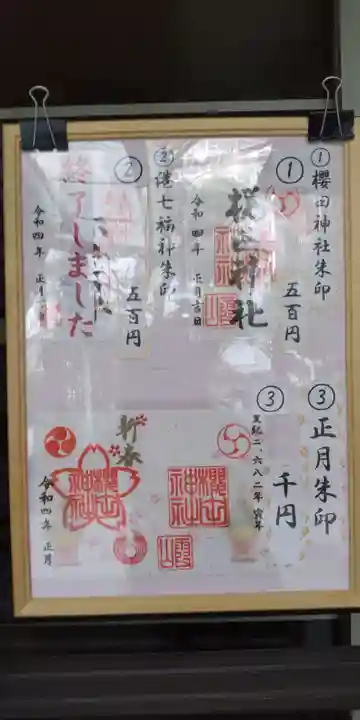 ①櫻田神社朱印
①
五百円
桜田神社
令和四年 正月吉日
②港七福神朱印
②
五百円
終了しました
令和四年 正月
③正月朱印
③
千円
皇紀二、六八二年 寅年
櫻田神社
霞山
新春
櫻田神社
令和四年 正月